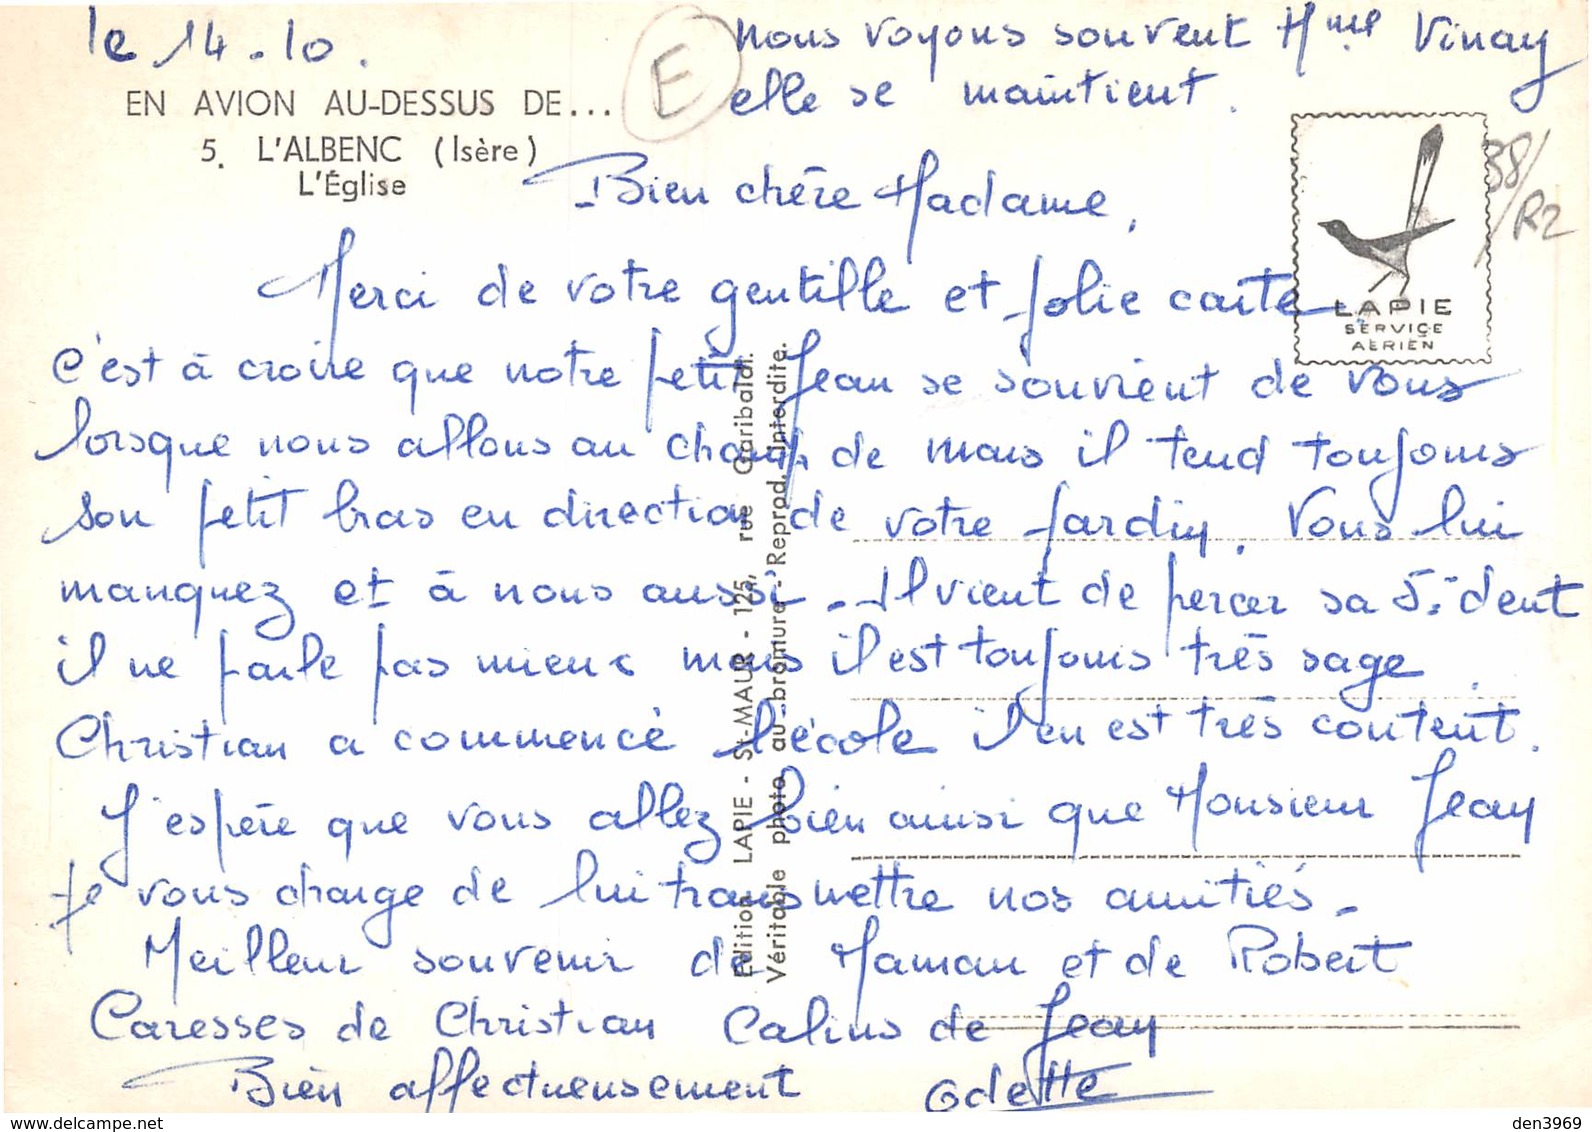 le 14.10.
nous voyons souvent Mme Vinay
elle se maintient.
E
EN AVION AU-DESSUS DE...
5. L'ALBENC (Isère)
L'Église
38/
R2
LAPIE
SERVICE
AÉRIEN
Bien chère Madame,
Merci de votre gentille et jolie carte.
C'est à croire que notre petit Jean se souvient de vous
lorsque nous allons au champ, de mais il tend toujours
son petit bras en direction de votre jardin. Vous lui
manquez et à nous aussi. Il vient de percer sa 5.e dent
il ne parle pas mieux mais il est toujours très sage.
Christian a commencé l'école il en est très content.
J'espère que vous allez bien ainsi que Monsieur Jean
je vous charge de lui transmettre nos amitiés.
Meilleur souvenir de Maman et de Robert
Caresses de Christian Calins de Jean
Bien affectueusement Odette
Edition LAPIE - St-MAUR - 125, rue Garibaldi.
Véritable photo au bromure - Reprod. Interdite.
den3969